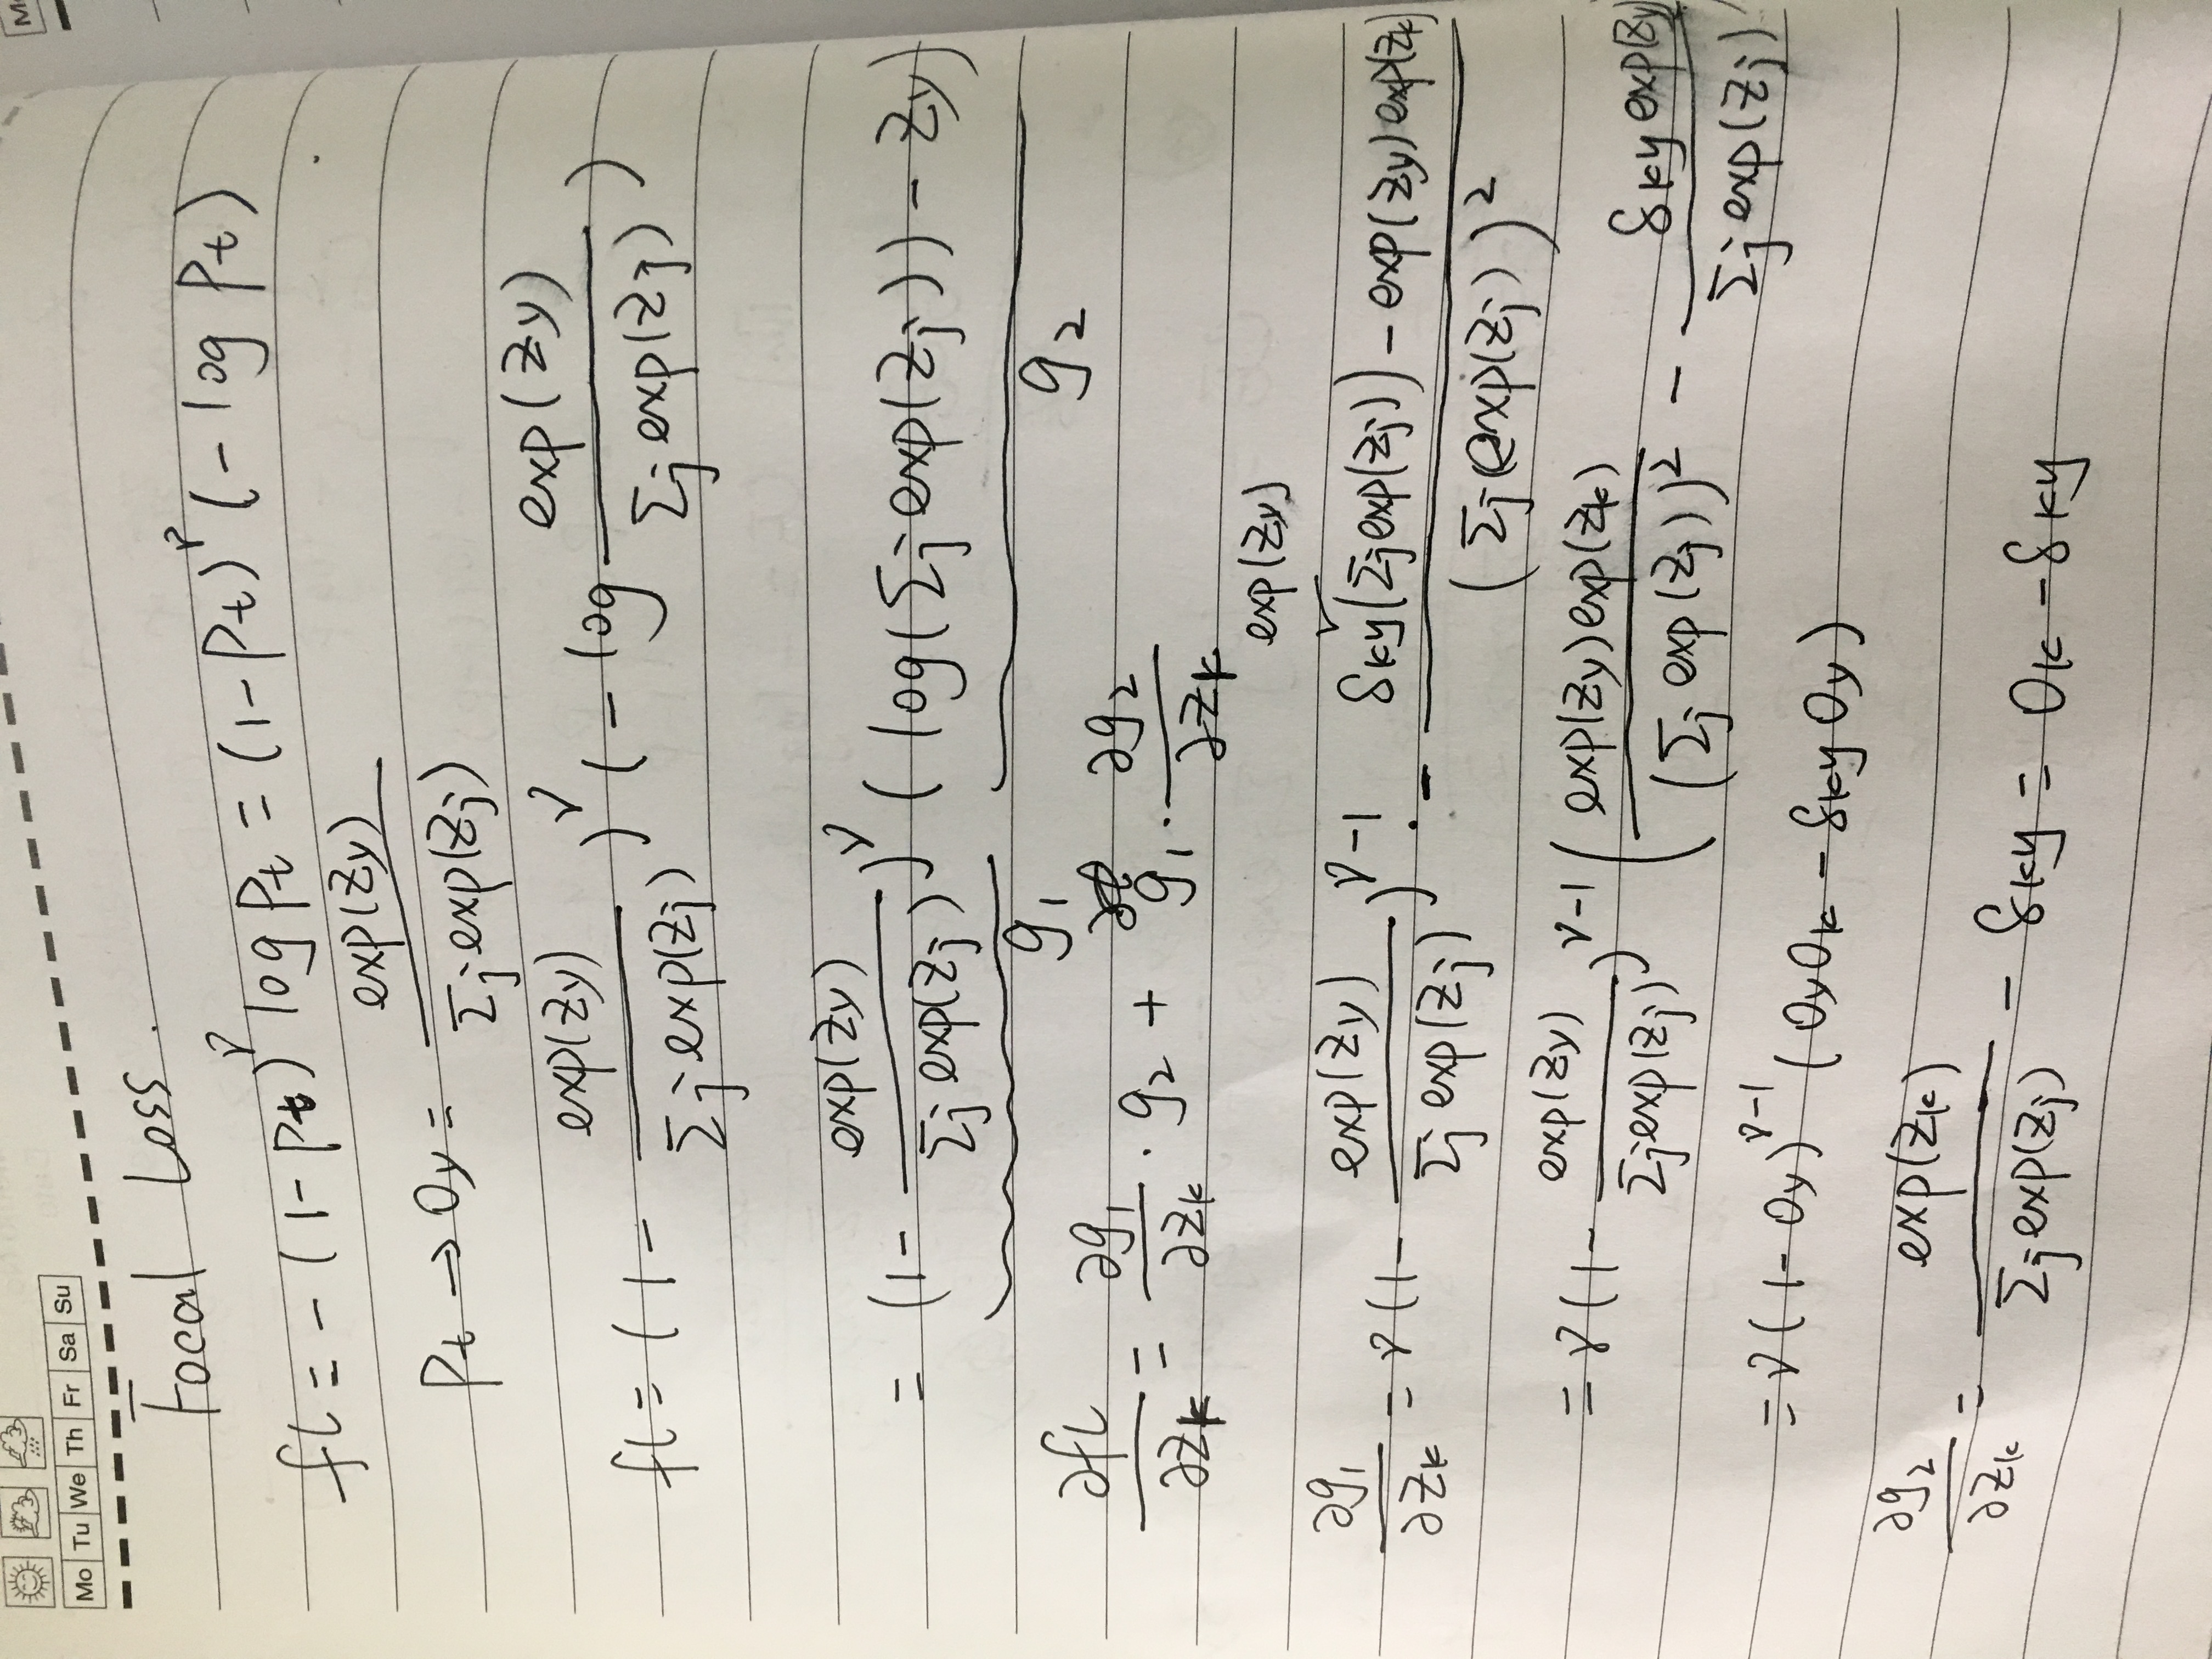 Mo Tu We Th Fr Sa Su
Focal Loss.
fl = -(1-Pt)^γ log Pt = (1-Pt)^γ (-log Pt)
Pt → Oy = exp(Zy) / Σj exp(Zj)
fl = (1 - exp(Zy) / Σj exp(Zj))^γ (-log exp(Zy) / Σj exp(Zj))
= (1 - exp(Zy) / Σj exp(Zj))^γ (log(Σj exp(Zj)) - Zy)
g1 g2
∂fl/∂Zk = ∂g1/∂Zk · g2 + g1 · ∂g2/∂Zk
exp(Zy)
∂g1/∂Zk = γ(1 - exp(Zy) / Σj exp(Zj))^γ-1 · - δky(Σj exp(Zj)) - exp(Zy) exp(Zk) / (Σj(exp(Zj))^2
= γ(1 - exp(Zy) / Σj exp(Zj))^γ-1 (exp(Zy) exp(Zk) / (Σj exp(Zj))^2 - δky exp(Zy) / Σj exp(Zj))
= γ(1-Oy)^γ-1 (OyOk - δkyOy)
∂g2/∂Zk = exp(Zk) / Σj exp(Zj) - δky = Ok - δky